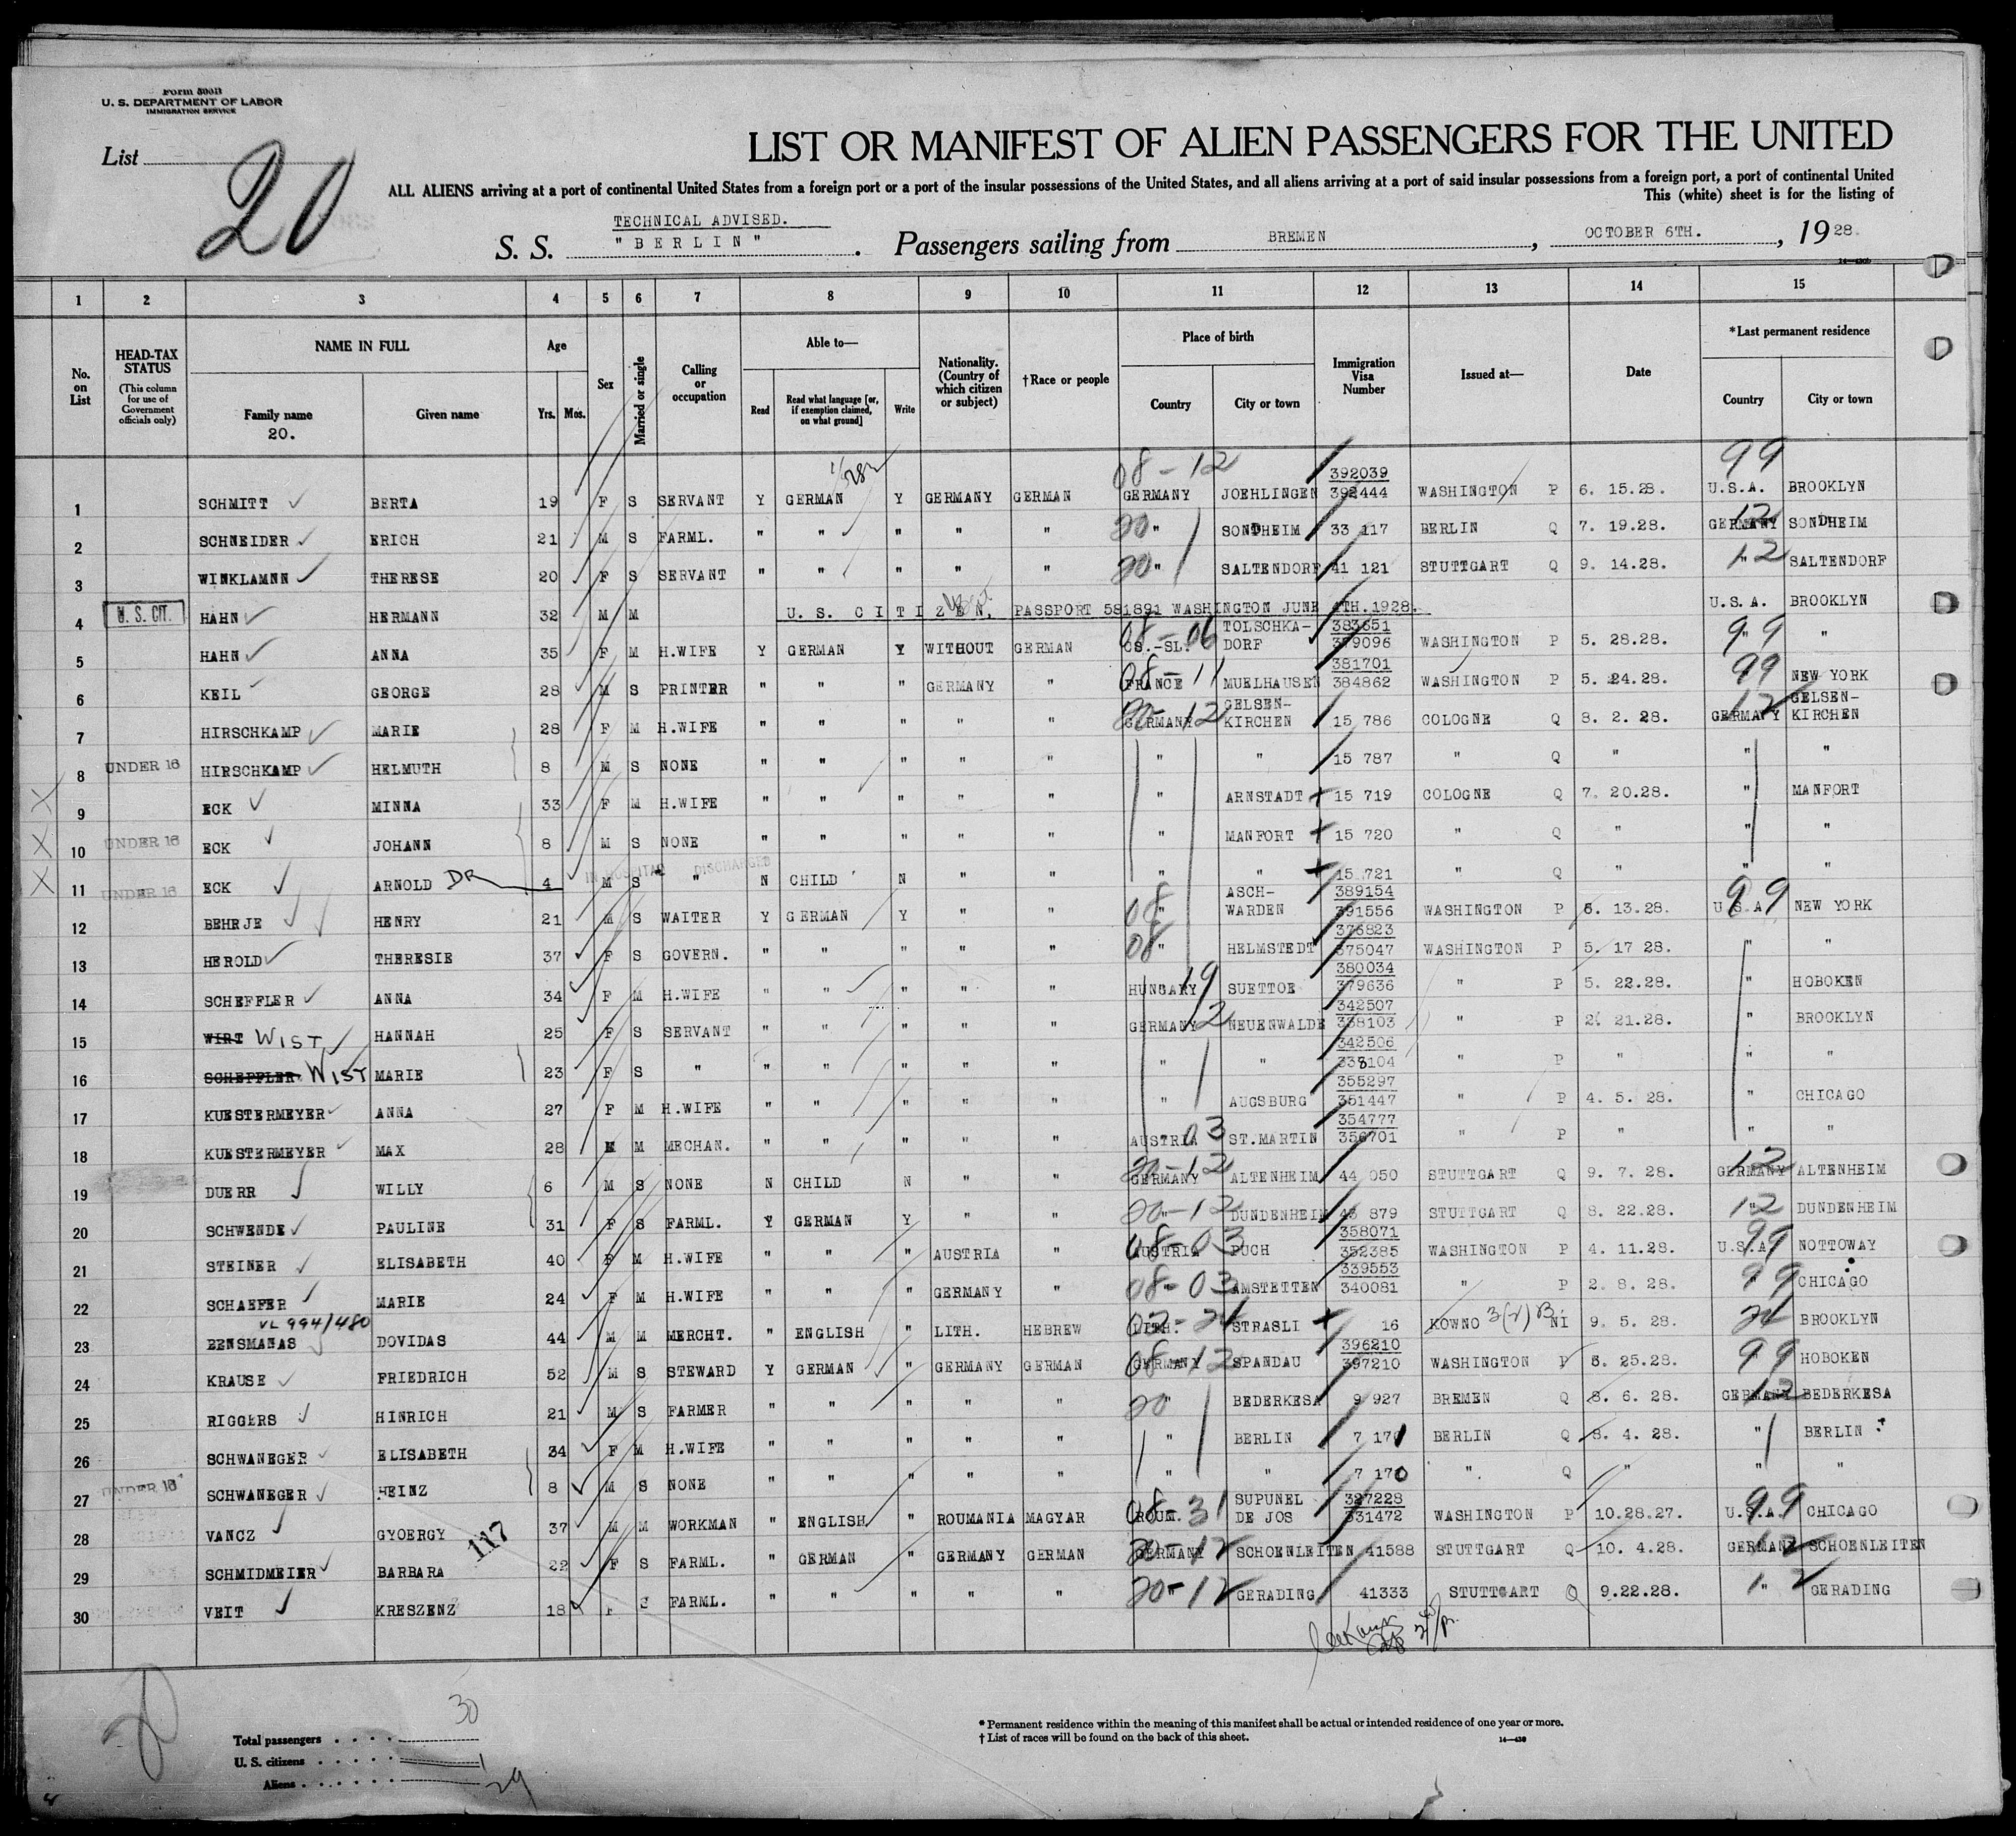 Form 500B
U. S. DEPARTMENT OF LABOR
IMMIGRATION SERVICE
List 20
LIST OR MANIFEST OF ALIEN PASSENGERS FOR THE UNITED
ALL ALIENS arriving at a port of continental United States from a foreign port or a port of the insular possessions of the United States, and all aliens arriving at a port of said insular possessions from a foreign port, a port of continental United
This (white) sheet is for the listing of
TECHNICAL ADVISED.
S. S. "BERLIN". Passengers sailing from BREMEN, OCTOBER 6TH., 1928.
1 2 3 4 5 6 7 8 9 10 11 12 13 14 15
No. on List
HEAD-TAX STATUS (This column for use of Government officials only)
NAME IN FULL
Family name 20.
Given name
Age
Yrs. Mos.
Sex
Married or single
Calling or occupation
Able to—
Read
Read what language [or, if exemption claimed, on what ground]
Write
Nationality. (Country of which citizen or subject)
†Race or people
Place of birth
Country
City or town
Immigration Visa Number
Issued at—
Date
*Last permanent residence
Country
City or town
08-12 392039 99
1 SCHMITT BERTA 19 F S SERVANT Y GERMAN Y GERMANY GERMAN GERMANY JOEHLINGEN 392444 WASHINGTON P 6. 15.28. U.S.A. BROOKLYN
2 SCHNEIDER ERICH 21 M S FARML. " " " " " 20 " SONDHEIM 33 117 BERLIN Q 7. 19.28. GERMANY 12 SONDHEIM
3 WINKLAMNN THERESE 20 F S SERVANT " " " " " 20 " SALTENDORF 41 121 STUTTGART Q 9. 14.28. " 12 SALTENDORF
4 U. S. CIT. HAHN HERMANN 32 M M U.S. CITIZEN, PASSPORT 581891 WASHINGTON JUNE 4TH.1928. U.S.A. BROOKLYN
08-06 TOLSCHKA- 383651 99
5 HAHN ANNA 35 F M H.WIFE Y GERMAN Y WITHOUT GERMAN CS.-SL. DORF 379096 WASHINGTON P 5. 28.28. " "
08-11 381701 99
6 KEIL GEORGE 28 M S PRINTER " " " GERMANY " FRANCE MUELHAUSEN 384862 WASHINGTON P 5. 24.28. " NEW YORK
20-12 GELSEN- 12 GELSEN-
7 HIRSCHKAMP MARIE 28 F M H.WIFE " " " " " GERMANY KIRCHEN 15 786 COLOGNE Q 8. 2. 28. GERMANY KIRCHEN
8 UNDER 16 HIRSCHKAMP HELMUTH 8 M S NONE " " " " " " " 15 787 " Q " " "
X 9 ECK MINNA 33 F M H.WIFE " " " " " " ARNSTADT 15 719 COLOGNE Q 7. 20.28. " MANFORT
X 10 UNDER 16 ECK JOHANN 8 M S NONE " " " " " " MANFORT 15 720 " Q " " "
IN HOSPITAL DISCHARGED
X 11 UNDER 16 ECK ARNOLD DR 4 M S " N CHILD N " " " " 15 721 " Q " " "
08 ASCH- 389154 99
12 BEHRJE HENRY 21 M S WAITER Y GERMAN Y " " " WARDEN 391556 WASHINGTON P 6. 13.28. U.S.A. NEW YORK
08 376823
13 HEROLD THERESIE 37 F S GOVERN. " " " " " " HELMSTEDT 375047 WASHINGTON P 5. 17 28. " "
19 380034
14 SCHEFFLER ANNA 34 F M H.WIFE " " " " " HUNGARY SUETTOE 379636 " P 5. 22.28. " HOBOKEN
12 342507
15 WIRT WIST HANNAH 25 F S SERVANT " " " " " GERMANY NEUENWALDE 338103 " P 2. 21.28. " BROOKLYN
342506
16 SCHEFFLER WIST MARIE 23 F S " " " " " " " " 338104 " P " " "
355297
17 KUESTERMEYER ANNA 27 F M H.WIFE " " " " " " AUGSBURG 351447 " P 4. 5. 28. " CHICAGO
03 354777
18 KUESTERMEYER MAX 28 M M MECHAN. " " " " " AUSTRIA ST.MARTIN 356701 " P " " "
20-12 12
19 DUERR WILLY 6 M S NONE N CHILD N " " GERMANY ALTENHEIM 44 050 STUTTGART Q 9. 7. 28. GERMANY ALTENHEIM
20-12 12
20 SCHWENDE PAULINE 31 F S FARML. Y GERMAN Y " " " DUNDENHEIM 43 879 STUTTGART Q 8. 22.28. " DUNDENHEIM
08-03 358071 99
21 STEINER ELISABETH 40 F M H.WIFE " " " AUSTRIA " AUSTRIA PUCH 352385 WASHINGTON P 4. 11.28. U.S.A. NOTTOWAY
08-03 339553 99
22 SCHAEFER MARIE 24 F M H.WIFE " " " GERMANY " " AMSTETTEN 340081 " P 2. 8. 28. " CHICAGO
VL 994/480
23 BENSMANAS DOVIDAS 44 M M MERCHT. " ENGLISH " LITH. HEBREW LITH. STRASLI 16 KOWNO NI 9. 5. 28. BROOKLYN
08-12 396210 99
24 KRAUSE FRIEDRICH 52 M S STEWARD Y GERMAN " GERMANY GERMAN GERMANY SPANDAU 397210 WASHINGTON P 6. 25.28. " HOBOKEN
20 12
25 RIGGERS HINRICH 21 M S FARMER " " " " " " BEDERKESA 9 927 BREMEN Q 8. 6. 28. GERMANY BEDERKESA
26 SCHWANEGER ELISABETH 34 F M H.WIFE " " " " " " BERLIN 7 171 BERLIN Q 8. 4. 28. " BERLIN
27 UNDER 16 SCHWANEGER HEINZ 8 M S NONE " " " " " " " 7 170 " Q " " "
08-31 SUPUNEL 327228 99
28 VANCZ GYOERGY 37 M M WORKMAN " ENGLISH " ROUMANIA MAGYAR ROUM. DE JOS 331472 WASHINGTON P 10.28.27. U.S.A. CHICAGO
117 20-12 12
29 SCHMIDMEIER BARBARA 22 F S FARML. " GERMAN " GERMANY GERMAN GERMANY SCHOENLEITEN 41588 STUTTGART Q 10. 4.28. GERMANY SCHOENLEITEN
20-12 12
30 VEIT KRESZENZ 18 F S FARML. " " " " " " GERADING 41333 STUTTGART Q 9.22.28. " GERADING
20
Total passengers 30
U. S. citizens 1
Aliens 29
* Permanent residence within the meaning of this manifest shall be actual or intended residence of one year or more.
† List of races will be found on the back of this sheet.
14—430